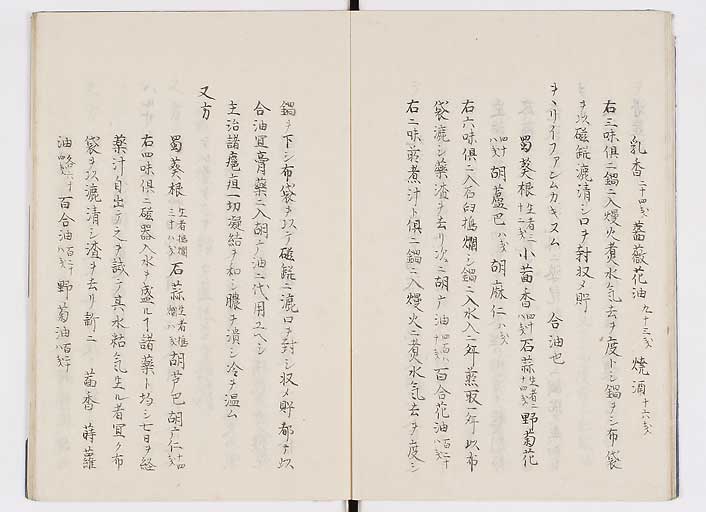 乳香二十四戔 薔薇花油九十三戔 焼酒十六戔
右三味倶ニ鍋ニ入慢火煮水気去ヲ度トシ鍋ヲ シ布袋
ヲ以磁 漉清シ口ヲ封収メ貯
ヲヽリイフアンムカキスム 合油也
蜀葵根生者三十二戔 小茴香四戔 石蒜生者二十四戔 野菊花
四戔 胡蘆巴八戔 胡麻仁八戔
右六味倶ニ入石臼搗爛シ鍋ニ入水入二年煎取一年以布
袋漉シ薬渣ヲ去リ次ニ胡广油 百合花油
右二味 煎煮汁ト倶ニ鍋ニ入慢火ニ煮水気去ヲ度シ
鍋ヲ下シ布袋ヲ以テ磁 ニ漉口ヲ封シ収メ貯都テ此
合油冝膏薬ニ入胡广油ニ代用ユヘシ
主治諸瘡疽一切凝結ヲ和シ膿ヲ潰シ冷ヲ温ム
又方
蜀葵根生者搗爛三十八戔 石蒜生者搗爛八戔 胡芦巴 胡广仁十四戔
右四味倶ニ磁器入水ヲ盛ルヿ諸薬ト均シ七日ヲ経
薬汁自出 之ヲ試テ其水粘気生ル者冝ク布
袋ヲ以漉清シ渣ヲ去リ新ニ 茴香 蒔蘿
油 百合油 野菊油